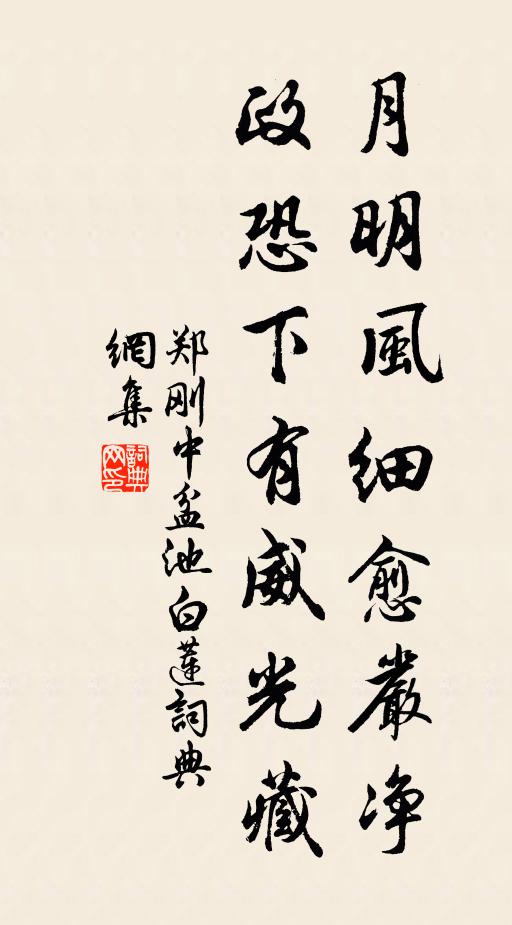 月明風細愈嚴净
政恐下有威光藏
郑刚中盆池白蓮詞典
網集
詞典網印